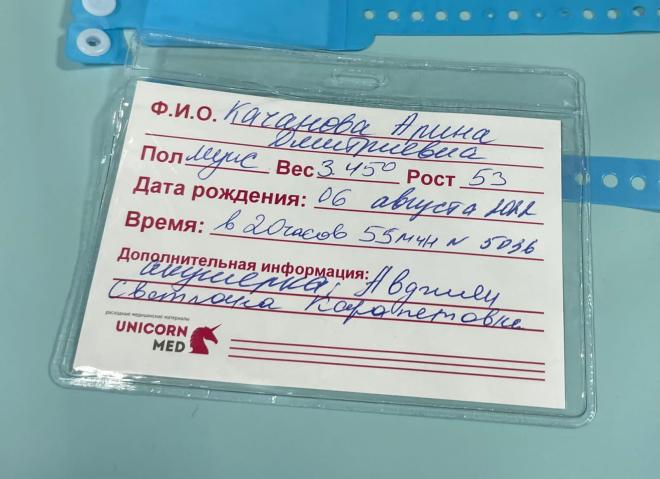 Ф.И.О. Качанова Арина
Дмитриевна
Пол муж Вес 3.450 Рост 53
Дата рождения: 06 августа 2022
Время: в 20 часов 55 мин N 5036
Дополнительная информация:
акушерка,
Светлана Карапетовна
расходные медицинские материалы
UNICORN
MED